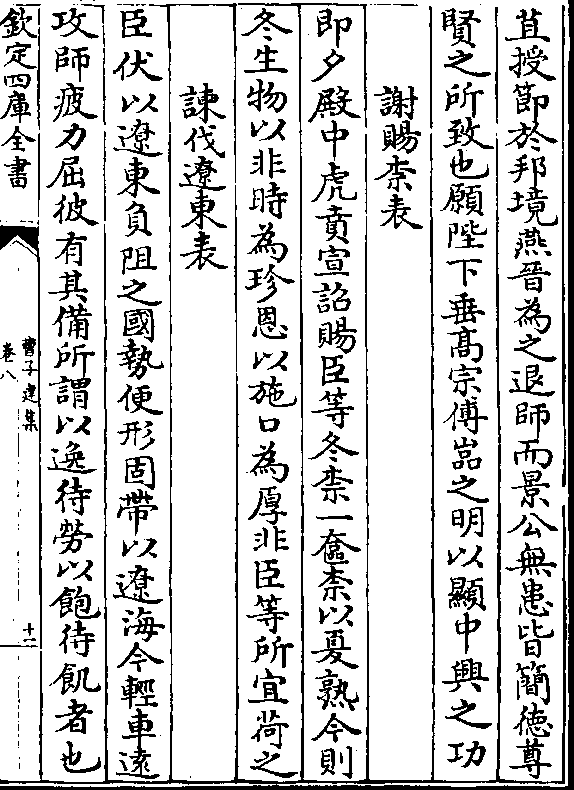 苴授節於邦境燕晉為之退師而景公無患皆簡德尊
賢之所致也願陛下垂髙宗傅嵒之明以顯中興之功
謝賜柰表
即夕殿中虎賁宣詔賜臣等冬柰一奩柰以夏熟今則
冬生物以非時為珍恩以施口為厚非臣等所宜荷之
諫伐遼東表
臣伏以遼東負阻之國勢便形固帶以遼海今輕車逺
攻師疲力屈彼有其備所謂以逸待勞以飽待飢者也
欽定四庫全書
曹子建集
卷八
十二